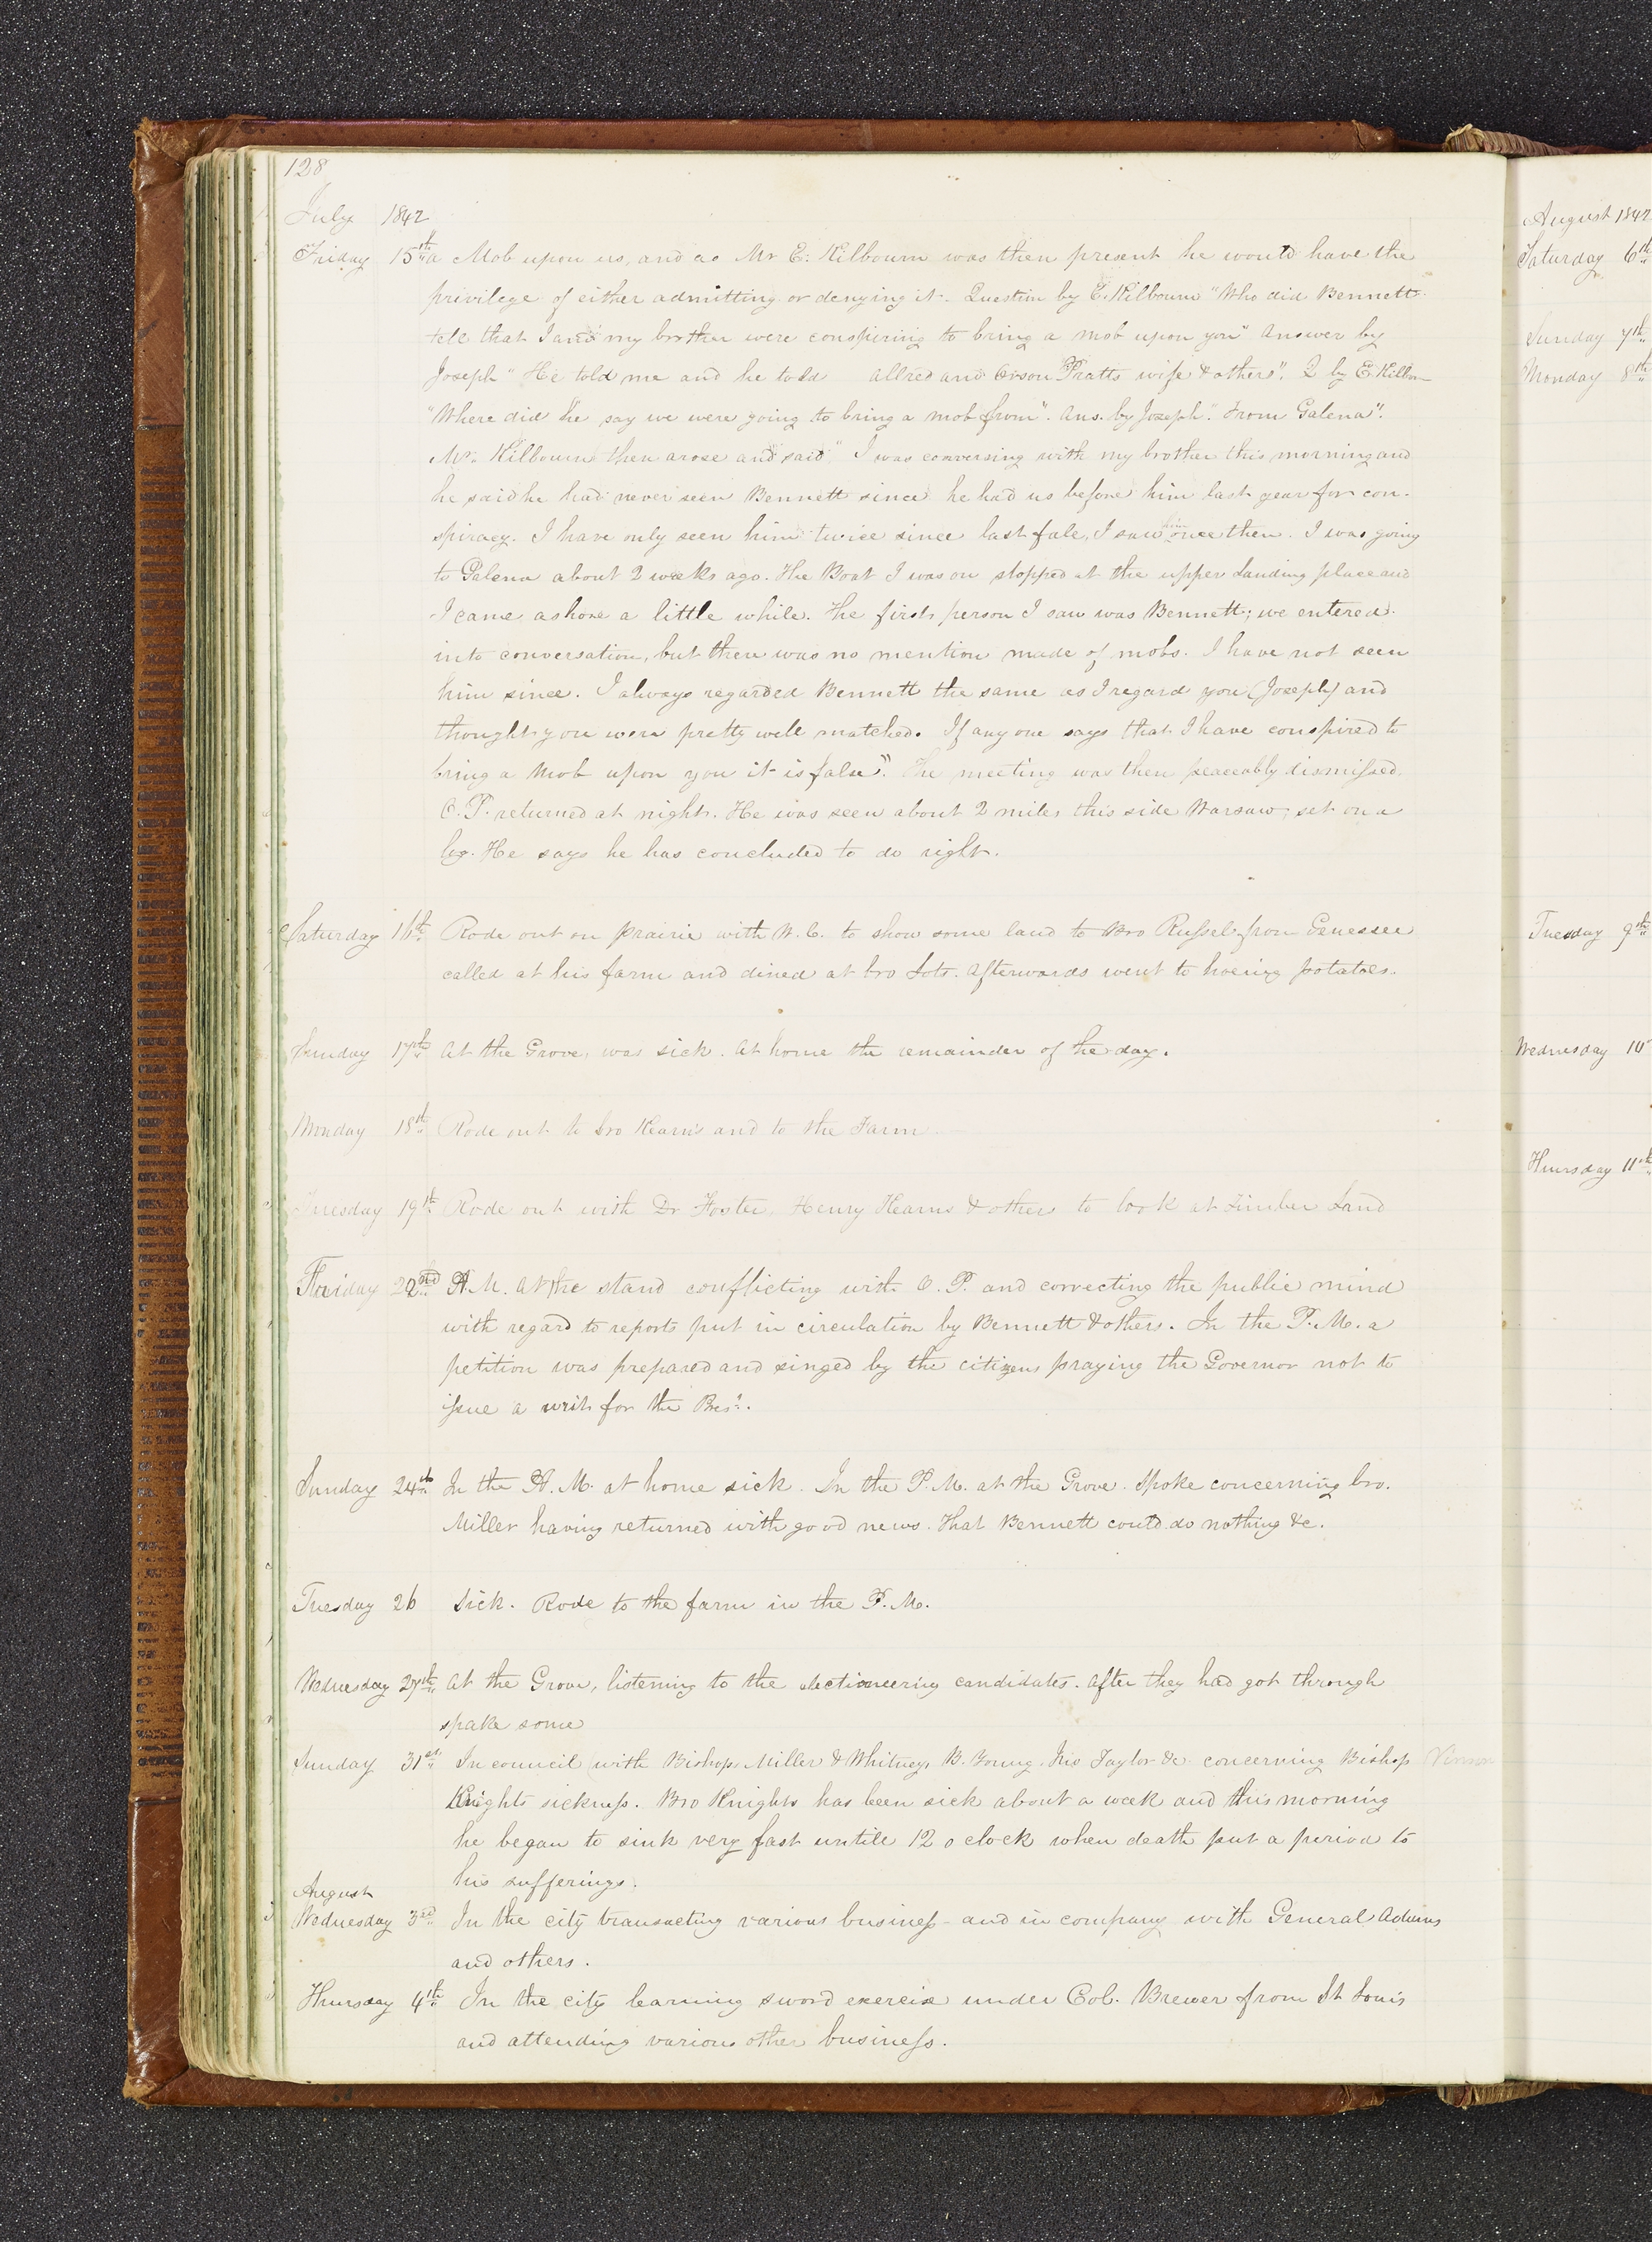 128
July 1842
Friday 15th a Mob upon us, and as Mr E. Kilbourn was then present he would have the
privilege of either admitting or denying it. Question by E. Kilbourn "Who did Bennett
tell that I and my brother were conspiring to bring a mob upon you" Answer by
Joseph "He told me and he told Allred and Orson Pratts wife & others". Q by E. Kilbourn
"Where did he say we were going to bring a mob from". Ans. by Joseph. "From Galena".
Mr. Kilbourn then arose and said "I was conversing with my brother this morning and
he said he had never seen Bennett since he had us before him last year for con-
spiracy. I have only seen him twice since last fale, I saw him once then. I was going
to Galena about 2 weeks ago. The Boat I was on stopped at the upper Landing place and
I came ashore a little while. The first person I saw was Bennett; we entered
into conversation, but there was no mention made of mobs. I have not seen
him since. I always regarded Bennett the same as I regard you (Joseph) and
thought you were pretty well matched. If any one says that I have conspired to
bring a Mob upon you it is false". The meeting was then peaceably dismissed.
O. P. returned at night. He was seen about 2 miles this side Warsaw, set on a
log. He says he has concluded to do right.
Saturday 16th Rode out on prairie with W. C. to show some land to Bro Russel from Genessee
called at his farm and dined at bro Lots. Afterwards went to hoeing potatoes.
Sunday 17th At the Grove, was sick. At home the remainder of the day.
Monday 18th Rode out to bro Kearns and to the Farm
Tuesday 19th Rode out with Dr Foster, Henry Kearns & others to look at Timber Land
Friday 22nd A.M. At the stand conflicting with O. P. and correcting the public mind
with regard to reports put in circulation by Bennett & others. In the P.M. a
petition was prepared and singed by the citizens praying the Governor not to
issue a writ for the Prest.
Sunday 24th In the A.M. at home sick. In the P.M. at the Grove. Spoke concerning bro.
Miller having returned with good news. That Bennett could do nothing &c.
Tuesday 26 Sick. Rode to the farm in the P.M.
Wednesday 27th At the Grove, listening to the electioneering candidates. After they had got through
spake some
Sunday 31st In council with Bishops Miller & Whitney, B. Young, Jno Taylor &c concerning Bishop Vinson
Knights sickness. Bro Knights has been sick about a week and this morning
he began to sink very fast untile 12 o clock when death put a period to
his sufferings.
August
Wednesday 3rd In the city transacting various business and in company with General Adams
and others.
Thursday 4th In the city learning sword exercise under Col. Brewer from St Louis
and attending various other business.
August 1842
Saturday 6th
Sunday 7th
Monday 8th
Tuesday 9th
Wednesday 10
Thursday 11th